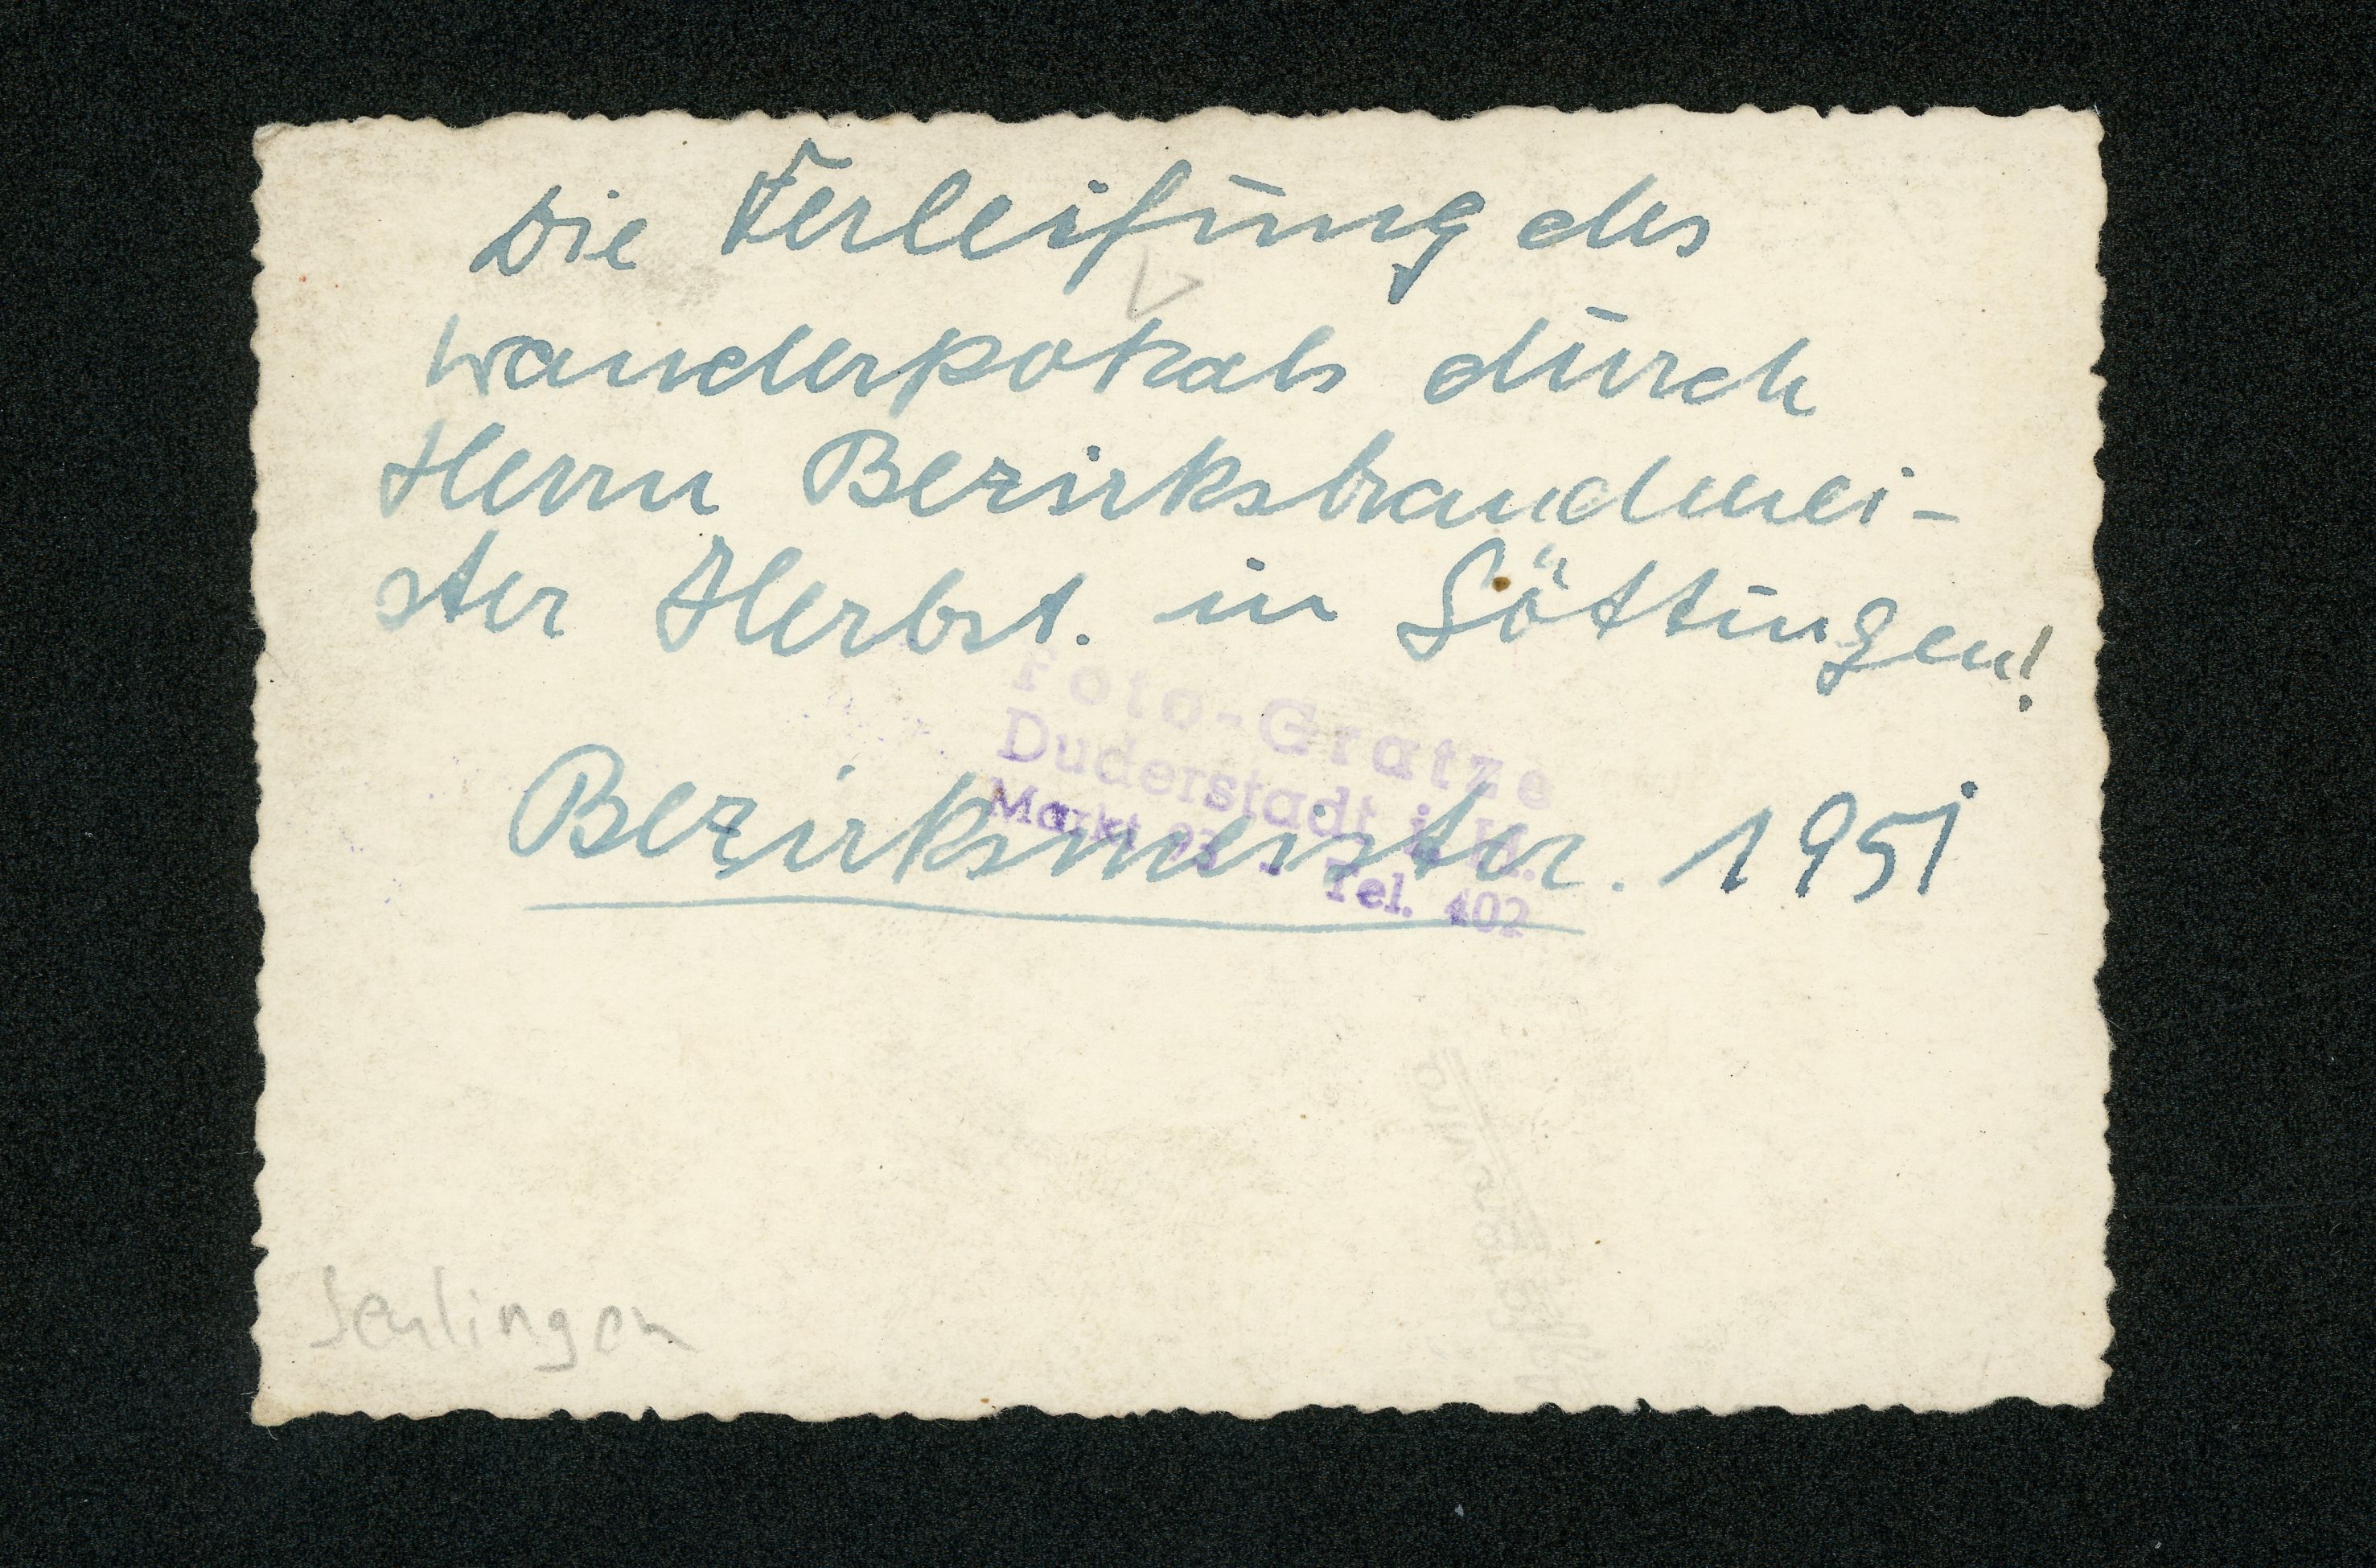 Die Verleihung des
Wanderpokals durch
Herrn Bezirksbrandmei-
ster Herbst. in Göttingen!
Foto-Gratze
Duderstadt i. H.
Markt - Tel. 402
Bezirksmeister. 1951
Seulingen